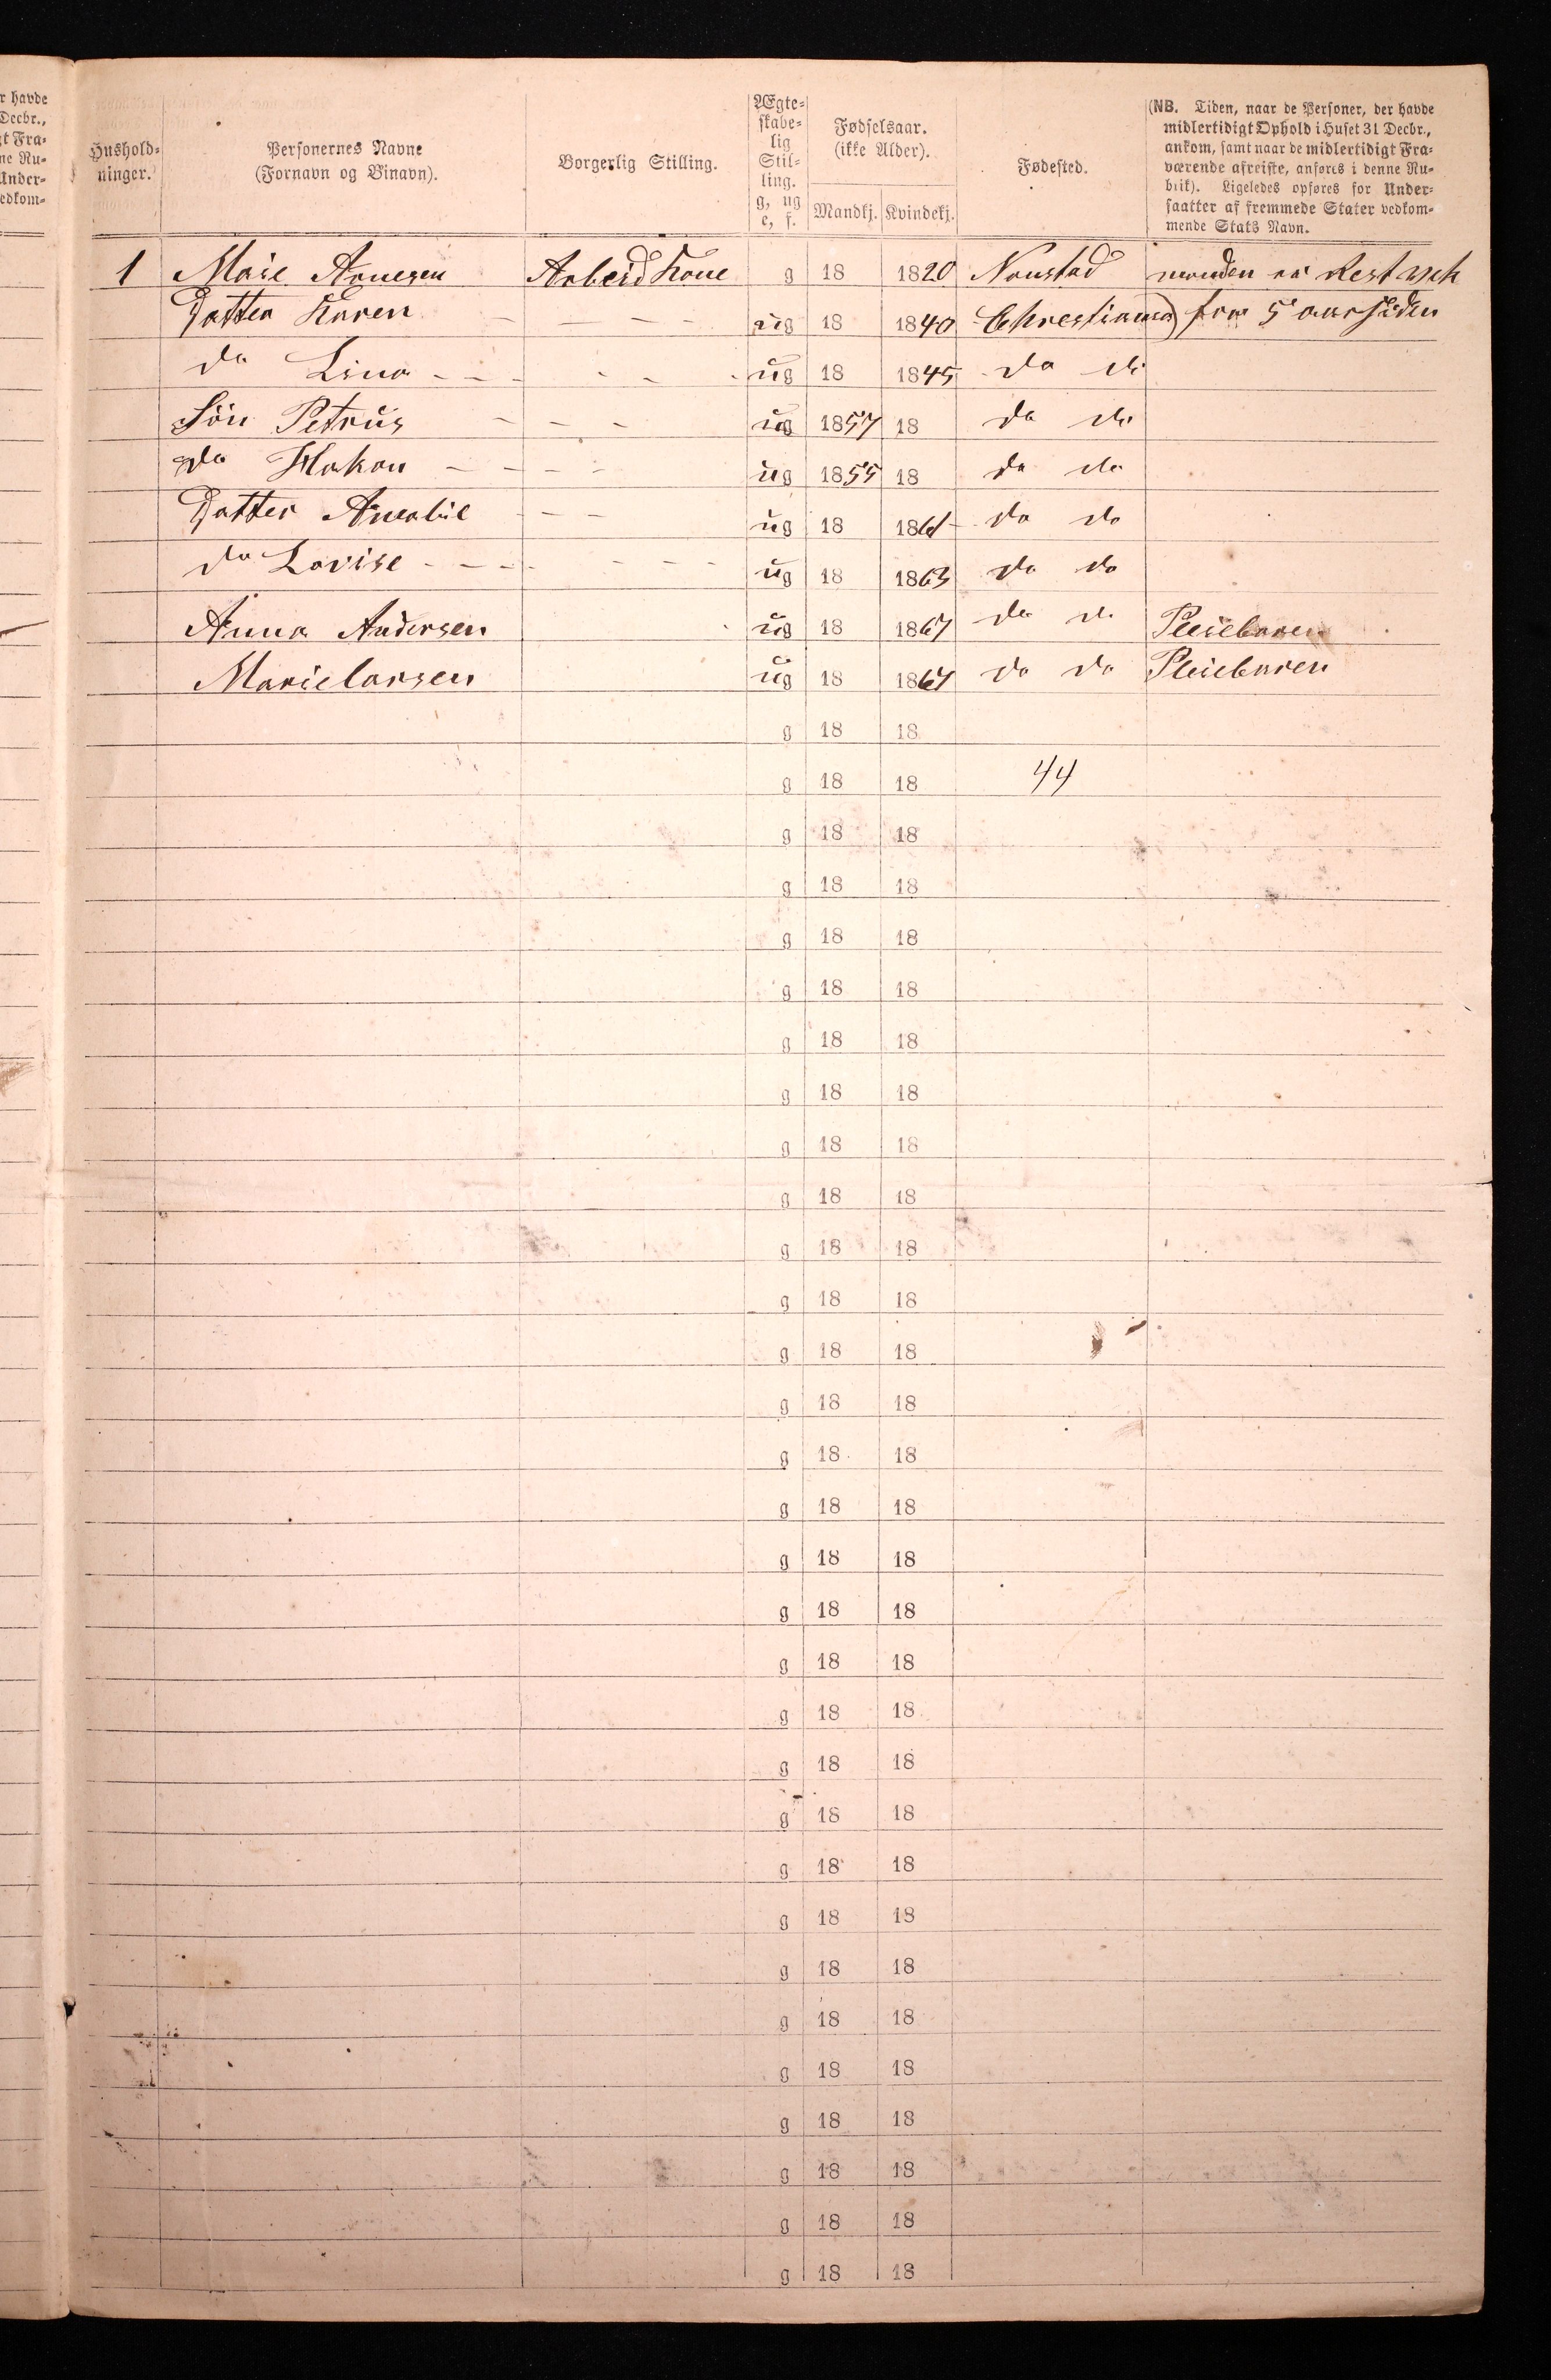 r havde
Decbr.,
gt Fra-
ne Ru-
Under-
edkom-
Hushold-
ninger.
Personernes Navne
(Fornavn og Binavn).
Borgerlig Stilling.
Ægte-
skabe-
lig
Stil-
ling.
g, ug
e, f.
Fødselsaar.
(ikke Alder).
Mandkj. Kvindekj.
Fødested.
(NB. Tiden, naar de Personer, der havde
midlertidigt Ophold i Huset 31 Decbr.,
ankom, samt naar de midlertidigt Fra-
værende afreiste, anføres i denne Ru-
brik). Ligeledes opføres for Under-
saatter af fremmede Stater vedkom-
mende Stats Navn.
1 Marie Arnesen Arbeid Kone g 18 1820 Nanstad manden er
Datter Karen — — — — ug 18 1840 Christiania) for 5 aar siden
do Lina - - - - - - ug 18 1845 do do
Sön Petrus — — — ug 1857 18 do do
do Hakon — — — - ug 1855 18 do do
Datter Amalie - — — ug 18 1861 do do
do Lovise - - - - - - - ug 18 1863 do do
Anna Andersen ug 18 1867 do do Pleiebaren
Marie Larsen ug 18 1867 do do Pleiebaren
g 18 18
g 18 18 44
g 18 18
g 18 18
g 18 18
g 18 18
g 18 18
g 18 18
g 18 18
g 18 18
g 18 18
g 18 18
g 18 18
g 18 18
g 18 18
g 18 18
g 18 18
g 18 18
g 18 18
g 18 18
g 18 18
g 18 18
g 18 18
g 18 18
g 18 18
g 18 18
g 18 18
g 18 18
g 18 18
g 18 18
g 18 18